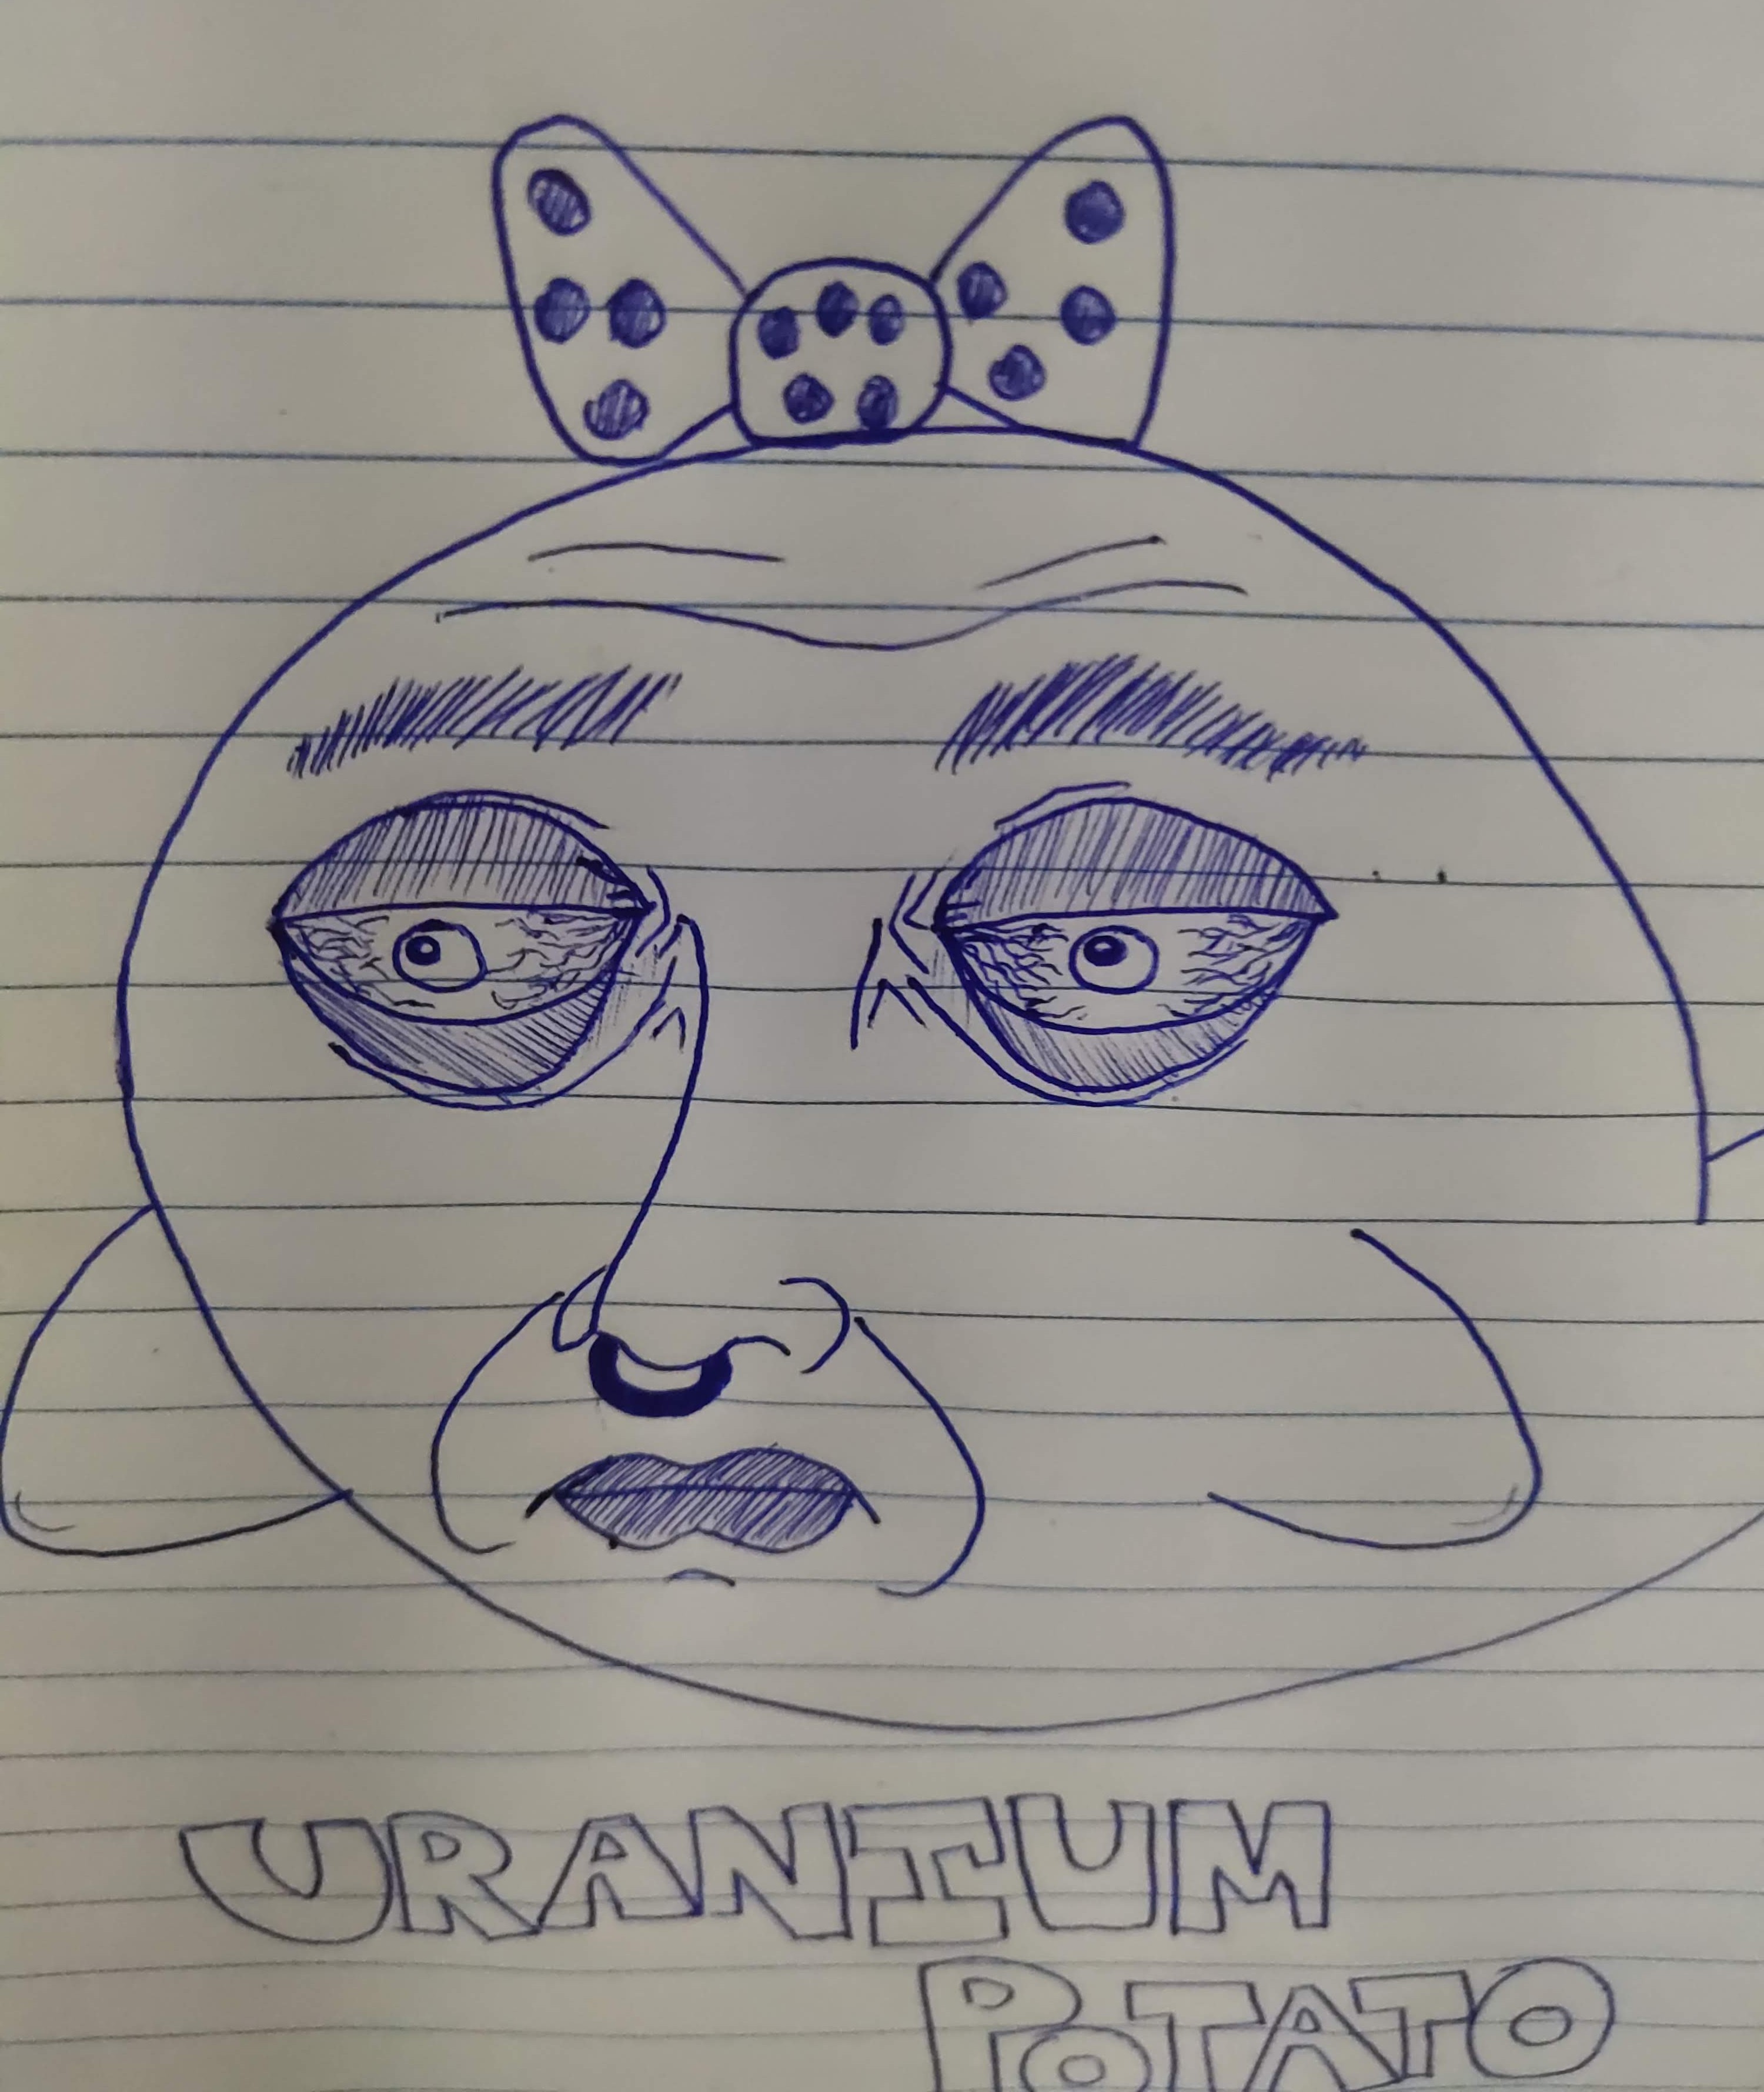 URANIUM
POTATO